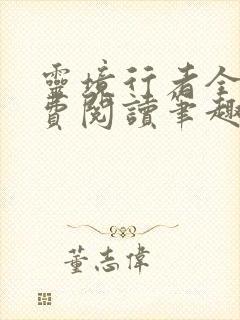 靈境行者全
費閱讀筆趣
董志偉